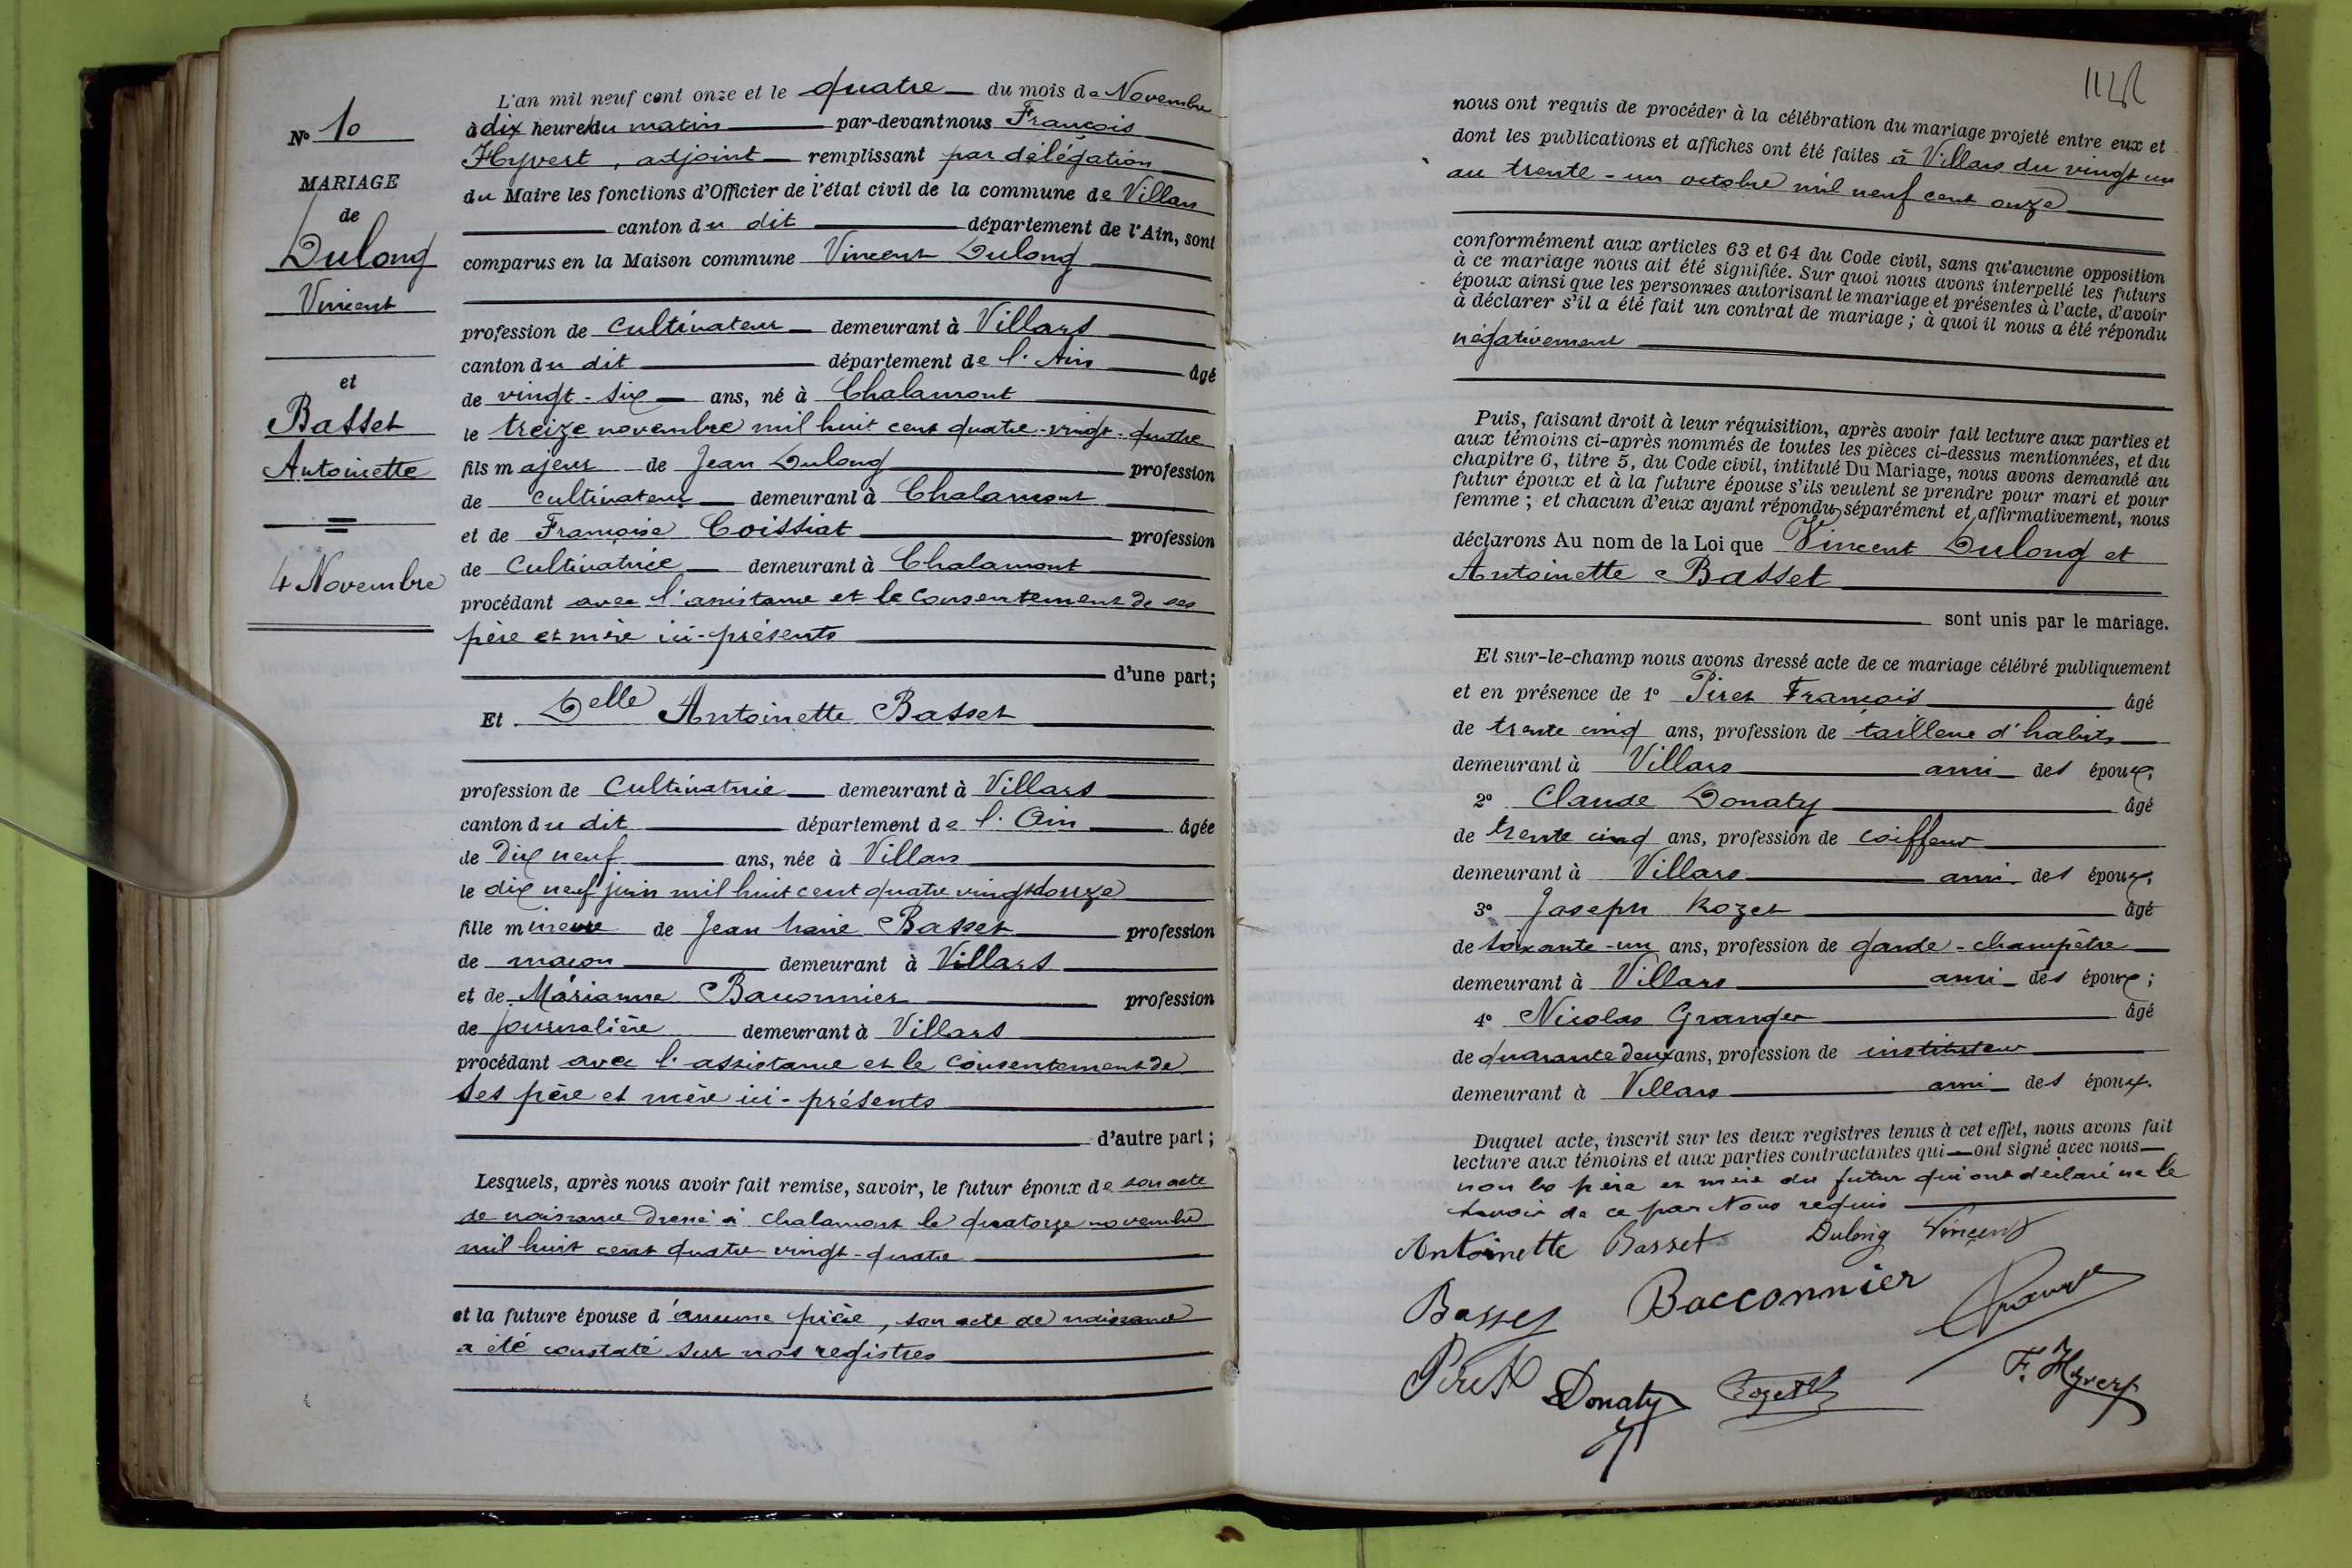 N° 10
MARIAGE
de
Dulong
Vincent
et
Basset
Antoinette
4 Novembre
L'an mil neuf cent onze et le quatre du mois de Novembre
à dix heures du matin par-devant nous François
Hyvert, adjoint remplissant par délégation
du Maire les fonctions d'Officier de l'état civil de la commune de Villars
canton du dit département de l'Ain, sont
comparus en la Maison commune Vincent Dulong
profession de Cultivateur demeurant à Villars
canton du dit département de l'Ain âgé
de vingt-six ans, né à Chalamont
le treize novembre mil huit cent quatre-vingt-quatre
fils majeur de Jean Dulong profession
de cultivateur demeurant à Chalamont
et de Françoise Coissiat profession
de Cultivatrice demeurant à Chalamont
procédant avec l'assistance et le consentement de ses
père et mère ici-présents
d'une part;
Et Delle Antoinette Basset
profession de Cultivatrice demeurant à Villars
canton du dit département de l'Ain âgée
de Dix neuf ans, née à Villars
le dix neuf juin mil huit cent quatre vingt douze
fille mineure de Jean Marie Basset profession
de maçon demeurant à Villars
et de Marianne Bacconnier profession
de journalière demeurant à Villars
procédant avec l'assistance et le consentement de
ses père et mère ici-présents
d'autre part;
Lesquels, après nous avoir fait remise, savoir, le futur époux de son acte
de naissance dressé à Chalamont le quatorze novembre
mil huit cent quatre-vingt-quatre
et la future épouse d'aucune pièce, son acte de naissance
a été constaté sur nos registres
nous ont requis de procéder à la célébration du mariage projeté entre eux et
dont les publications et affiches ont été faites à Villars du vingt un
au trente-un octobre mil neuf cent onze
conformément aux articles 63 et 64 du Code civil, sans qu'aucune opposition
à ce mariage nous ait été signifiée. Sur quoi nous avons interpellé les futurs
époux ainsi que les personnes autorisant le mariage et présentes à l'acte, d'avoir
à déclarer s'il a été fait un contrat de mariage; à quoi il nous a été répondu
négativement
Puis, faisant droit à leur réquisition, après avoir fait lecture aux parties et
aux témoins ci-après nommés de toutes les pièces ci-dessus mentionnées, et du
chapitre 6, titre 5, du Code civil, intitulé Du Mariage, nous avons demandé au
futur époux et à la future épouse s'ils veulent se prendre pour mari et pour
femme; et chacun d'eux ayant répondu séparément et affirmativement, nous
déclarons Au nom de la Loi que Vincent Dulong et
Antoinette Basset
sont unis par le mariage.
Et sur-le-champ nous avons dressé acte de ce mariage célébré publiquement
et en présence de 1° Piret François âgé
de trente cinq ans, profession de tailleur d'habits
demeurant à Villars ami des époux;
2° Claude Donaty âgé
de trente cinq ans, profession de coiffeur
demeurant à Villars ami des époux;
3° Joseph Rozet âgé
de soixante-un ans, profession de garde-champêtre
demeurant à Villars ami des époux;
4° Nicolas Granger âgé
de quarante deux ans, profession de instituteur
demeurant à Villars ami des époux.
Duquel acte, inscrit sur les deux registres tenus à cet effet, nous avons fait
lecture aux témoins et aux parties contractantes qui ont signé avec nous
non les père et mère du futur qui ont déclaré ne le
savoir de ce par Nous requis
Antoinette Basset Dulong Vincent
Basset Bacconnier
Piret Donaty Rozet F. Hyvert